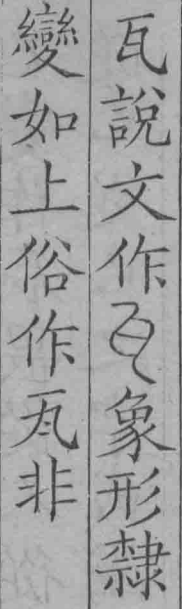 瓦說文作象形隸
變如上俗作非